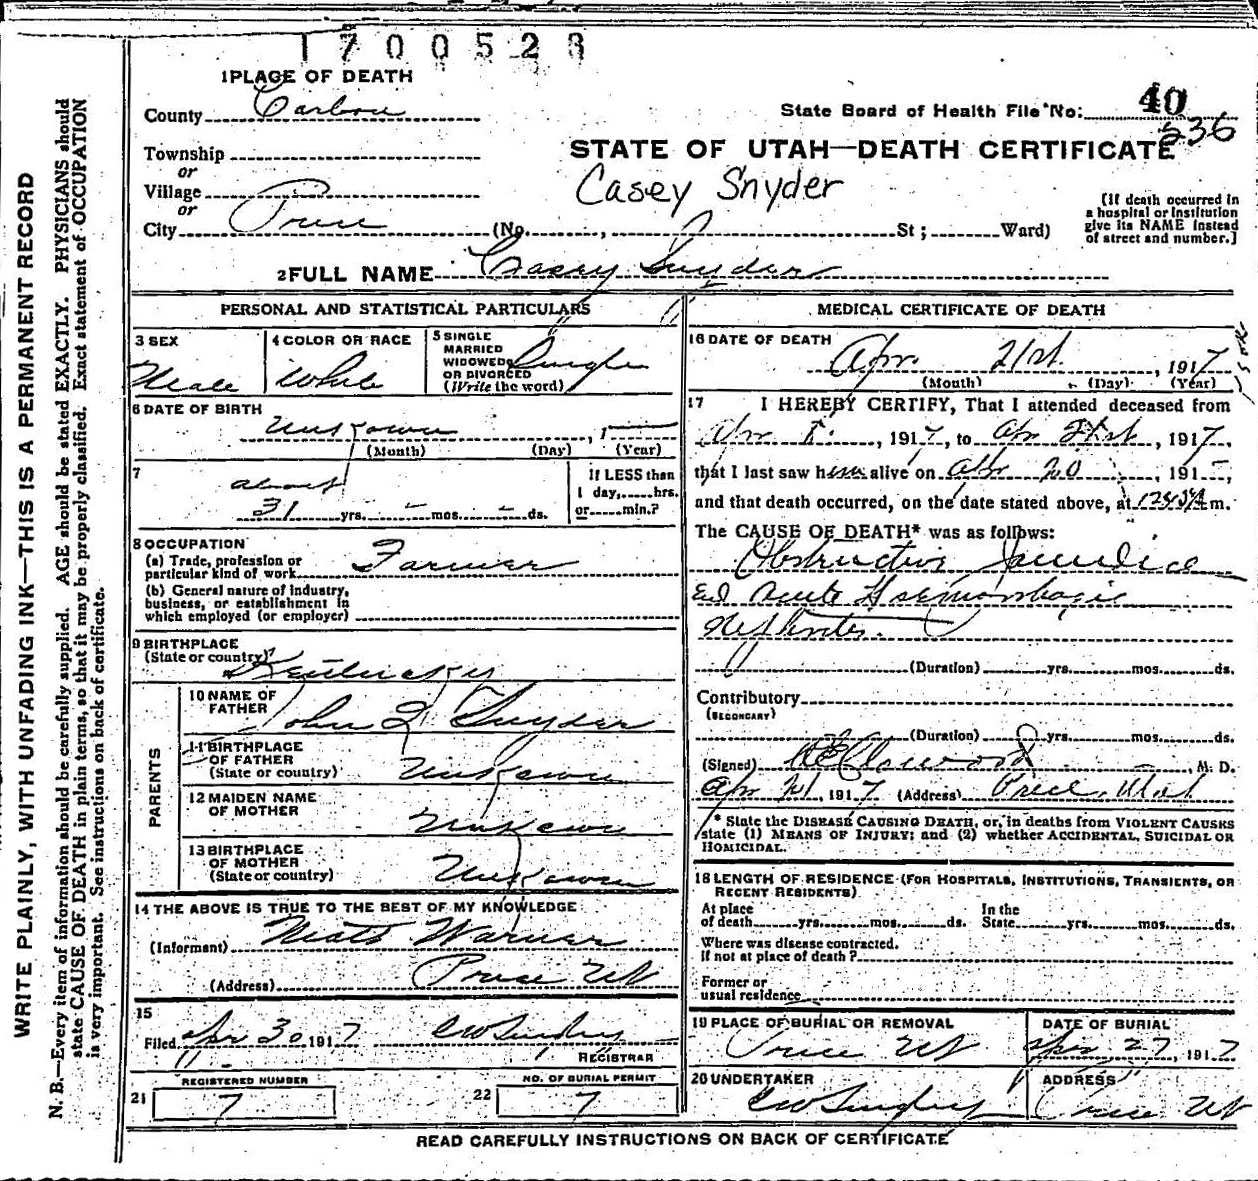 1700528
1 PLACE OF DEATH
County Carbon
State Board of Health File No: 40
236
Township
or
Village
or
City Price (No. , St; Ward)
STATE OF UTAH—DEATH CERTIFICATE
Casey Snyder
(If death occurred in
a hospital or institution
give its NAME instead
of street and number.]
2 FULL NAME Casey Snyder
PERSONAL AND STATISTICAL PARTICULARS
3 SEX
Male
4 COLOR OR RACE
White
5 SINGLE
MARRIED
WIDOWED
OR DIVORCED
(Write the word)
Single
6 DATE OF BIRTH
Unknown , 1
(Month) (Day) (Year)
7
about
31 yrs. - mos. - ds.
If LESS than
1 day, hrs.
or min.?
8 OCCUPATION
(a) Trade, profession or
particular kind of work Farmer
(b) General nature of industry,
business, or establishment in
which employed (or employer)
9 BIRTHPLACE
(State or country) Kentucky
PARENTS
10 NAME OF
FATHER
John Snyder
11 BIRTHPLACE
OF FATHER
(State or country) Unknown
12 MAIDEN NAME
OF MOTHER Unknown
13 BIRTHPLACE
OF MOTHER
(State or country) Unknown
14 THE ABOVE IS TRUE TO THE BEST OF MY KNOWLEDGE
(Informant) Warner
(Address) Price Ut
15
Filed Apr 30 1917
REGISTRAR
REGISTERED NUMBER
21 7
NO. OF BURIAL PERMIT
22 7
MEDICAL CERTIFICATE OF DEATH
16 DATE OF DEATH
Apr 21st , 1917
(Month) (Day) (Year)
17 I HEREBY CERTIFY, That I attended deceased from
Apr , 1917, to Apr 21st, 1917,
that I last saw him alive on Apr 20 , 191 ,
and that death occurred, on the date stated above, at m.
The CAUSE OF DEATH* was as follows:
Obstructive Jaundice
Acute Haemorrhagic
Nephritis.
(Duration) yrs. mos. ds.
Contributory
(SECONDARY)
(Duration) yrs. mos. ds.
(Signed) , M. D.
Apr 21, 1917 (Address) Price, Utah
* State the DISEASE CAUSING DEATH, or, in deaths from VIOLENT CAUSES
state (1) MEANS OF INJURY; and (2) whether ACCIDENTAL, SUICIDAL OR
HOMICIDAL.
18 LENGTH OF RESIDENCE (FOR HOSPITALS, INSTITUTIONS, TRANSIENTS, OR
RECENT RESIDENTS)
At place
of death yrs. mos. ds.
In the
State yrs. mos. ds.
Where was disease contracted,
if not at place of death?
Former or
usual residence
19 PLACE OF BURIAL OR REMOVAL
Price Ut
DATE OF BURIAL
Apr 27, 1917
20 UNDERTAKER
ADDRESS
Price Ut
READ CAREFULLY INSTRUCTIONS ON BACK OF CERTIFICATE
WRITE PLAINLY, WITH UNFADING INK—THIS IS A PERMANENT RECORD
N. B.—Every item of information should be carefully supplied. AGE should be stated EXACTLY. PHYSICIANS should
state CAUSE OF DEATH in plain terms, so that it may be properly classified. Exact statement of OCCUPATION
is very important. See instructions on back of certificate.